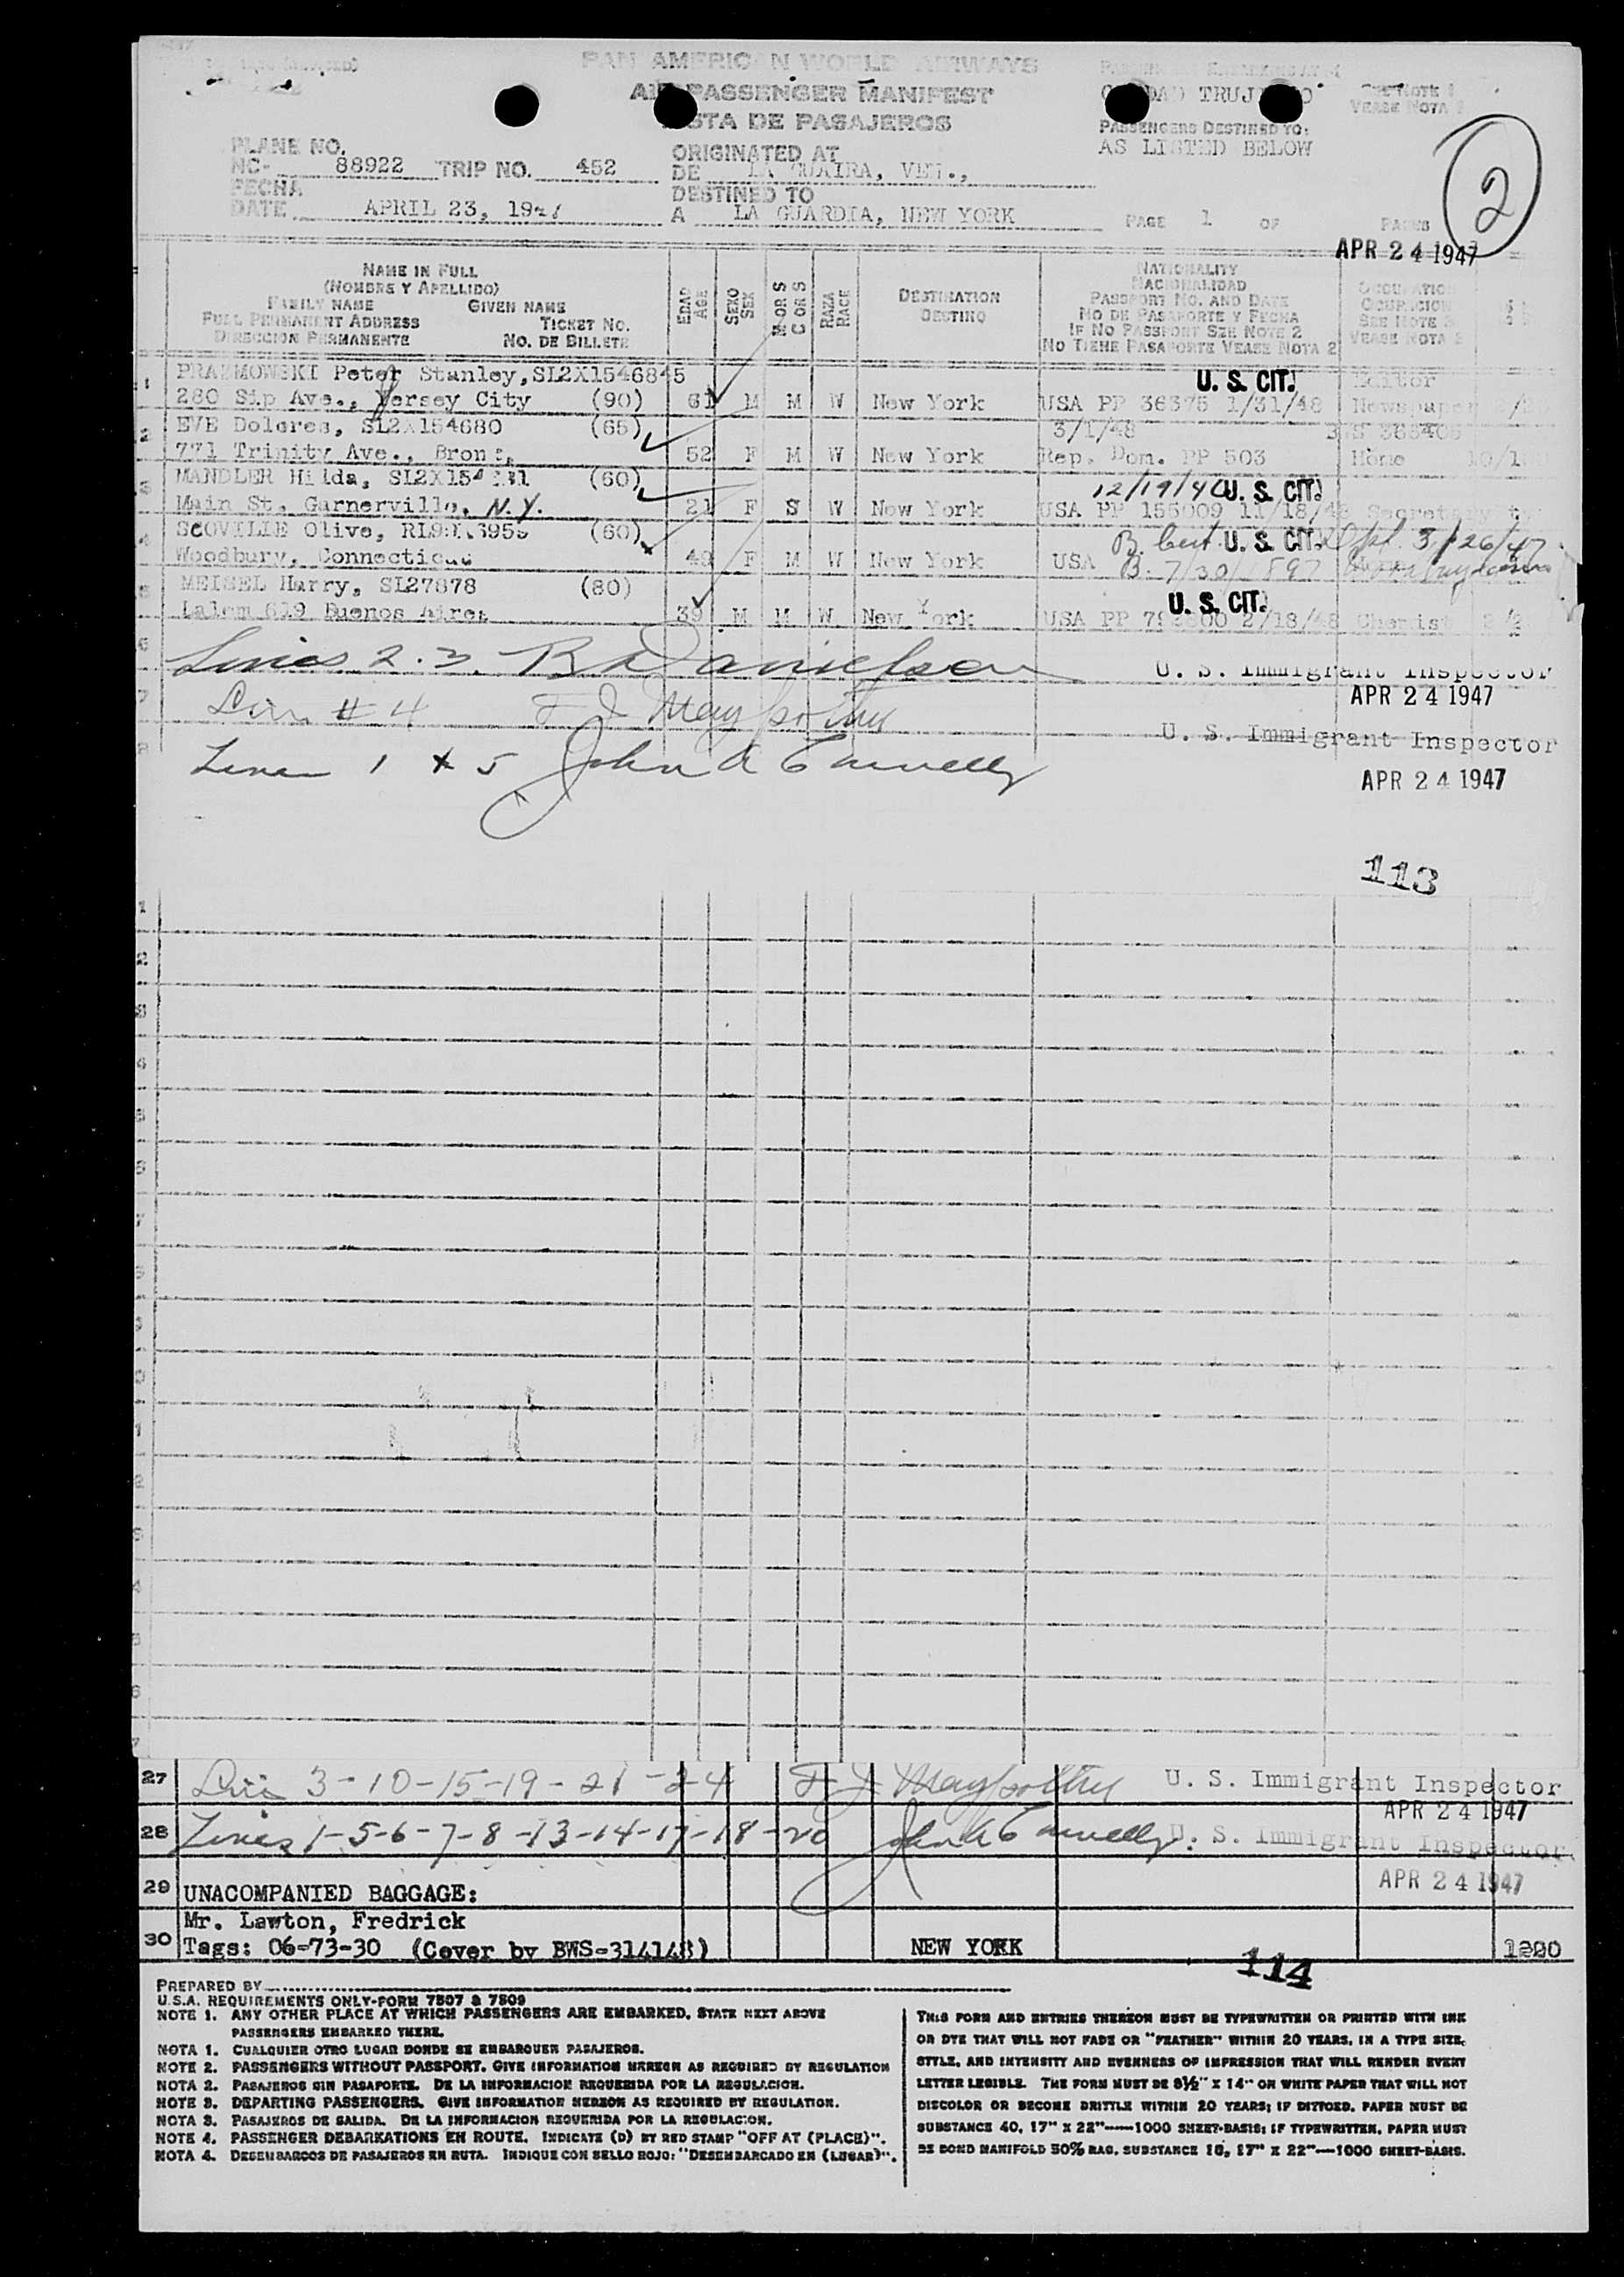 PAN AMERIC N WORLD AIRWAYS
AIR PASSENGER MANIFEST
LISTA DE PASAJEROS
C DAD TRUJ O
SEE NOTE
VEASE NOTA
PASSENGERS DESTINED TO:
AS LISTED BELOW
2
PLANE NO.
NC- 88922 TRIP NO. 452
ORIGINATED AT
DE LA GUAIRA, VEN.,
FECHA
DATE APRIL 23, 1947
DESTINED TO
A LA GUARDIA, NEW YORK
PAGE 1 OF PAGES
APR 24 1947
NAME IN FULL
(NOMBRE Y APELLIDO)
FAMILY NAME GIVEN NAME
FULL PERMANENT ADDRESS TICKET NO.
DIRECCION PERMANENTE NO. DE BILLETE
EDAD AGE
SEXO SEX
M OR S C OR S
RAZA RACE
DESTINATION
DESTINO
NATIONALITY
NACIONALIDAD
PASSPORT NO. AND DATE
NO DE PASAPORTE Y FECHA
IF NO PASSPORT SEE NOTE 2
NO TIENE PASAPORTE VEASE NOTA 2
OCCUPATION
OCUPACION
SEE NOTE 3
VEASE NOTA 3
1 PRAZMOWSKI Peter Stanley, SL2X1546845 U. S. CIT. Editor
280 Sip Ave., Jersey City (90) 61 M M W New York USA PP 36375 1/31/48 Newspaper
2 EVE Dolores, SL2X154680 (65) 3/1/48
771 Trinity Ave., Bronx, 52 F M W New York Rep. Dom. PP 503 Home
3 MANDLER Hilda, (60) 12/19/46 U. S. CIT.
Main St, Garnerville, N.Y. 21 F S W New York USA PP 155009 11/18/48
4 SCOVILLE Olive, (60) B. Cert. U. S. CIT. 3/26/47
Woodbury, Connecticut 49 F M W New York USA B. 7/30/1897
5 MEISEL Harry, SL27878 (80) U. S. CIT.
619 Buenos Aires 39 M M W New York USA PP 2/18/48 Chemist
6 Lines 2. 3. U. S. Immigrant Inspector
7 Line # 4 APR 24 1947
U. S. Immigrant Inspector
8 Lines 1 + 5
APR 24 1947
113
27 Line 3-10-15-19-21-24 U. S. Immigrant Inspector
APR 24 1947
28 Lines 1-5-6-7-8-13-14-17-18-20 U. S. Immigrant Inspector
29 UNACOMPANIED BAGGAGE: APR 24 1947
Mr. Lawton, Fredrick
30 Tags: 06-73-30 (Cover by BWS-314148) NEW YORK
114
PREPARED BY
U.S.A. REQUIREMENTS ONLY-FORM 7507 & 7509
NOTE 1. ANY OTHER PLACE AT WHICH PASSENGERS ARE EMBARKED, STATE NEXT ABOVE
PASSENGERS EMBARKED THERE.
NOTA 1. CUALQUIER OTRO LUGAR DONDE SE EMBARQUEN PASAJEROS.
NOTE 2. PASSENGERS WITHOUT PASSPORT. GIVE INFORMATION HEREON AS REQUIRED BY REGULATION
NOTA 2. PASAJEROS SIN PASAPORTE. DE LA INFORMACION REQUERIDA POR LA REGULACION.
NOTE 3. DEPARTING PASSENGERS. GIVE INFORMATION HEREON AS REQUIRED BY REGULATION.
NOTA 3. PASAJEROS DE SALIDA. DE LA INFORMACION REQUERIDA POR LA REGULACION.
NOTE 4. PASSENGER DEBARKATIONS EN ROUTE. INDICATE (D) BY RED STAMP "OFF AT (PLACE)".
NOTA 4. DESEMBARCOS DE PASAJEROS EN RUTA. INDIQUE CON SELLO ROJO: "DESEMBARCADO EN (LUGAR)".
THIS FORM AND ENTRIES THEREON MUST BE TYPEWRITTEN OR PRINTED WITH INK
OR DYE THAT WILL NOT FADE OR "FEATHER" WITHIN 20 YEARS, IN A TYPE SIZE,
STYLE, AND INTENSITY AND EVENNESS OF IMPRESSION THAT WILL RENDER EVERY
LETTER LEGIBLE. THE FORM MUST BE 8½" X 14" ON WHITE PAPER THAT WILL NOT
DISCOLOR OR BECOME BRITTLE WITHIN 20 YEARS; IF DITTOED, PAPER MUST BE
SUBSTANCE 40, 17" X 22"—1000 SHEET-BASIS; IF TYPEWRITTEN, PAPER MUST
BE BOND MANIFOLD 50% RAG, SUBSTANCE 16, 17" X 22"—1000 SHEET-BASIS.